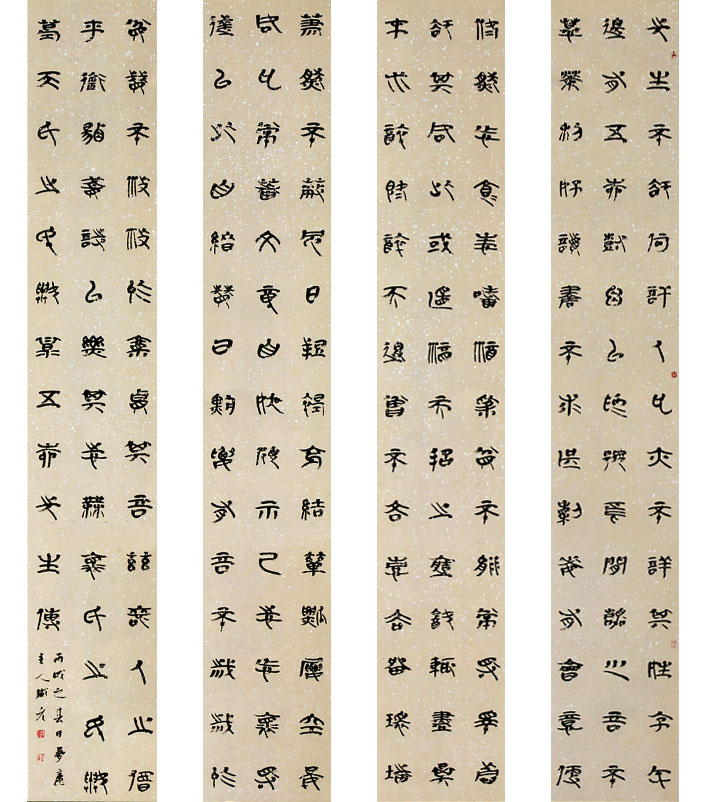 先生不知何許人也亦不詳其姓字宅
邊有五柳樹因以為號焉閒靜少言不
慕榮利好讀書不求甚解每有會意便
欣然忘食性嗜酒家貧不能常得親舊
知其如此或置酒而招之造飲輒盡期
在必醉既醉而退曾不吝情去留環堵
蕭然不蔽風日短褐穿結簞瓢屢空晏
如也常著文章自娛頗示己志忘懷得
失以此自終贊曰黔婁有言不戚戚於
貧賤不汲汲於富貴其言茲若人之儔
乎銜觴賦詩以樂其志無懷氏之民歟
葛天氏之民歟录五柳先生傳
丙戌之春日夢庵
主人